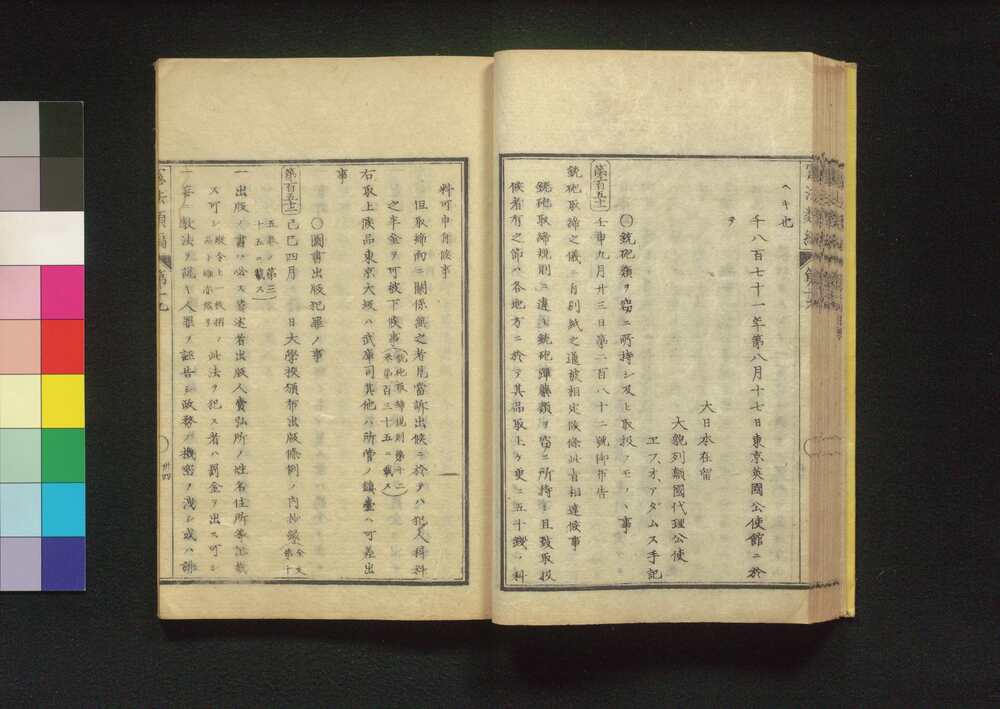 ヘキ也
千八百七十一年第八月十七日東京英國公使館ニ於
ヲ
大日本在留
大貌列顛國代理公使
エフ、オ、アダムス手記
〇銃砲類ヲ窃ニ所持シ及ヒ取扱フモノヽ事
第百五十一
壬申九月廿三日第二百八十二號御布告
銃砲取締之儀ニ付別紙之通被相定候條此旨相達候事
銃砲取締規則ニ違ヒ銃砲彈藥類ヲ窃ニ所持シ且致取扱
候者有之節ハ各地方ニ於テ其品取上ケ更ニ五十錢ノ科
料可申付候事
但取締向ニ關係無之者見當訴出候ニ於テハ犯人科料
之半金ヲ可被下候事(銃砲取締規則第十二
來第百三十五ニ載ス)
右取上候品東京大坂ハ武庫司其他ハ所管ノ鎮臺ヘ可差出
事
〇圖書出版犯罪ノ事
第百五十二
己巳四月 日大學校頒布出版條例ノ内抄録全文
第十
五卷ノ第三
十五ニ載ス
一出版ノ書ハ必ス著述者出版人賣弘所ノ姓名住所等記載
スヘシ
此法ヲ犯ス者ハ罰金ヲ出ス可シ
一妄ニ教法ヲ説キ人罪ヲ誣告シ政務ノ機密ヲ洩シ或ハ誹
卅四